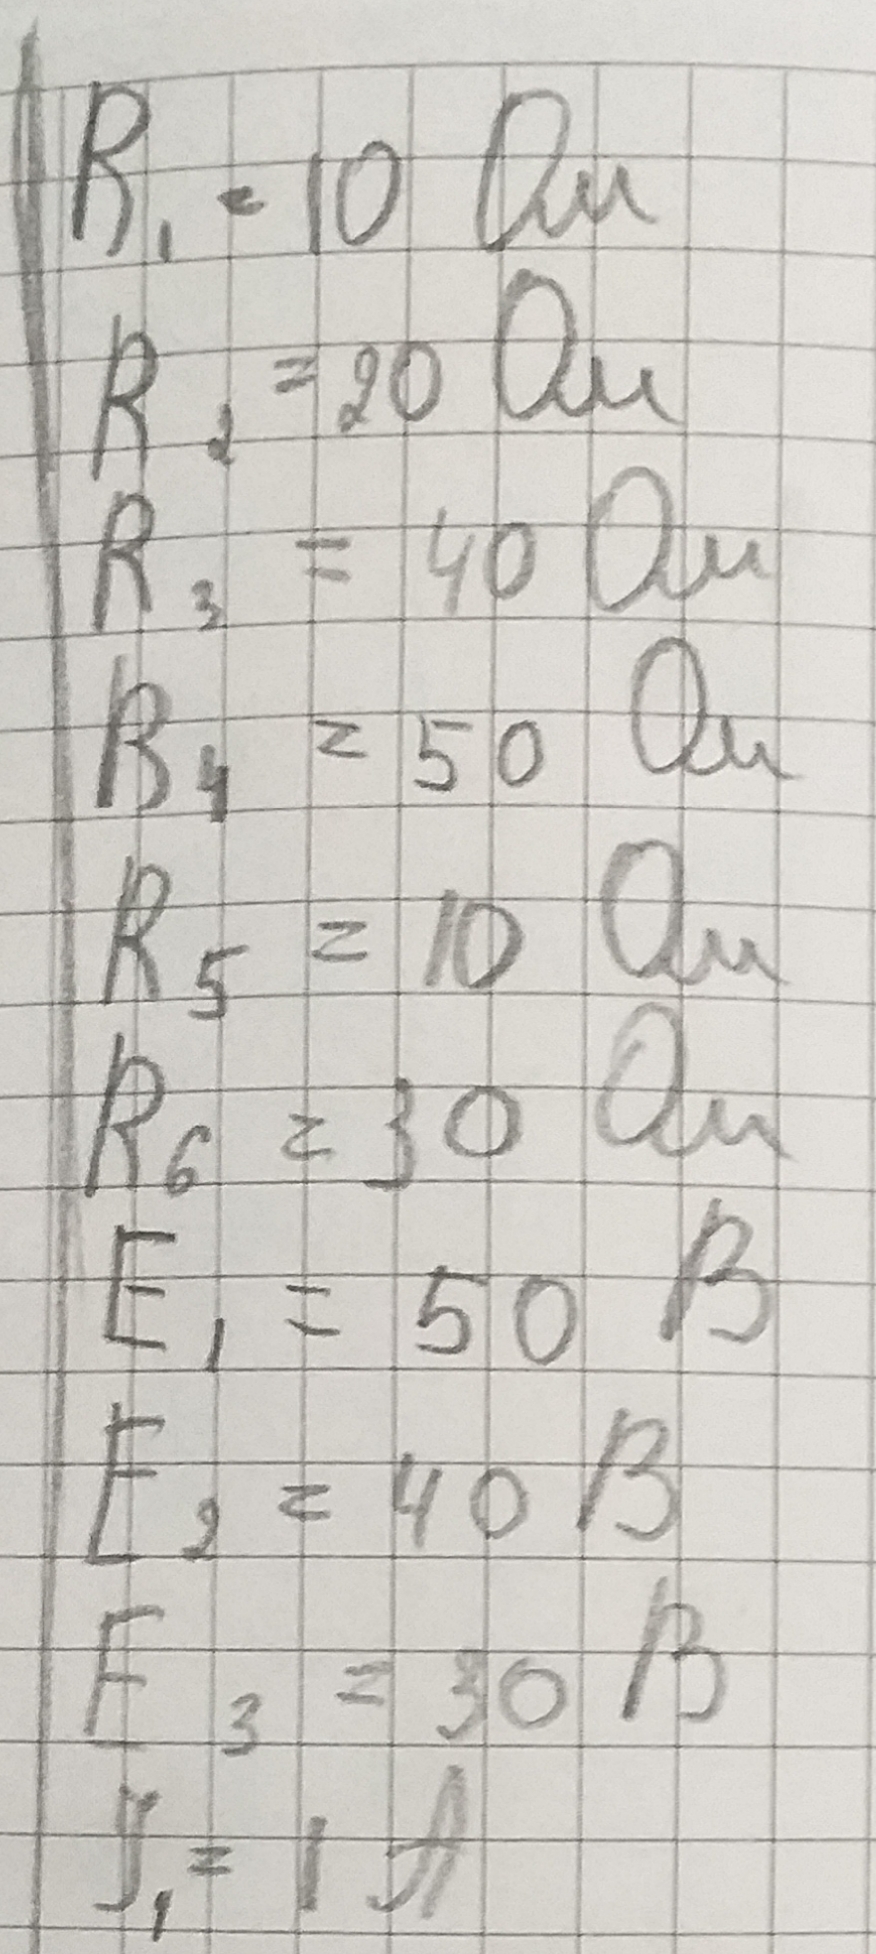 R₁ = 10 Ом
R₂ = 20 Ом
R₃ = 40 Ом
R₄ = 50 Ом
R₅ = 10 Ом
R₆ = 30 Ом
E₁ = 50 В
E₂ = 40 В
E₃ = 30 В
J₁ = 1 А